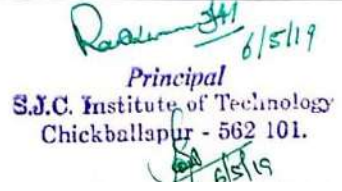 6/5/19
Principal
S.J.C. Institute of Technology
Chickballapur - 562 101.
6/5/19